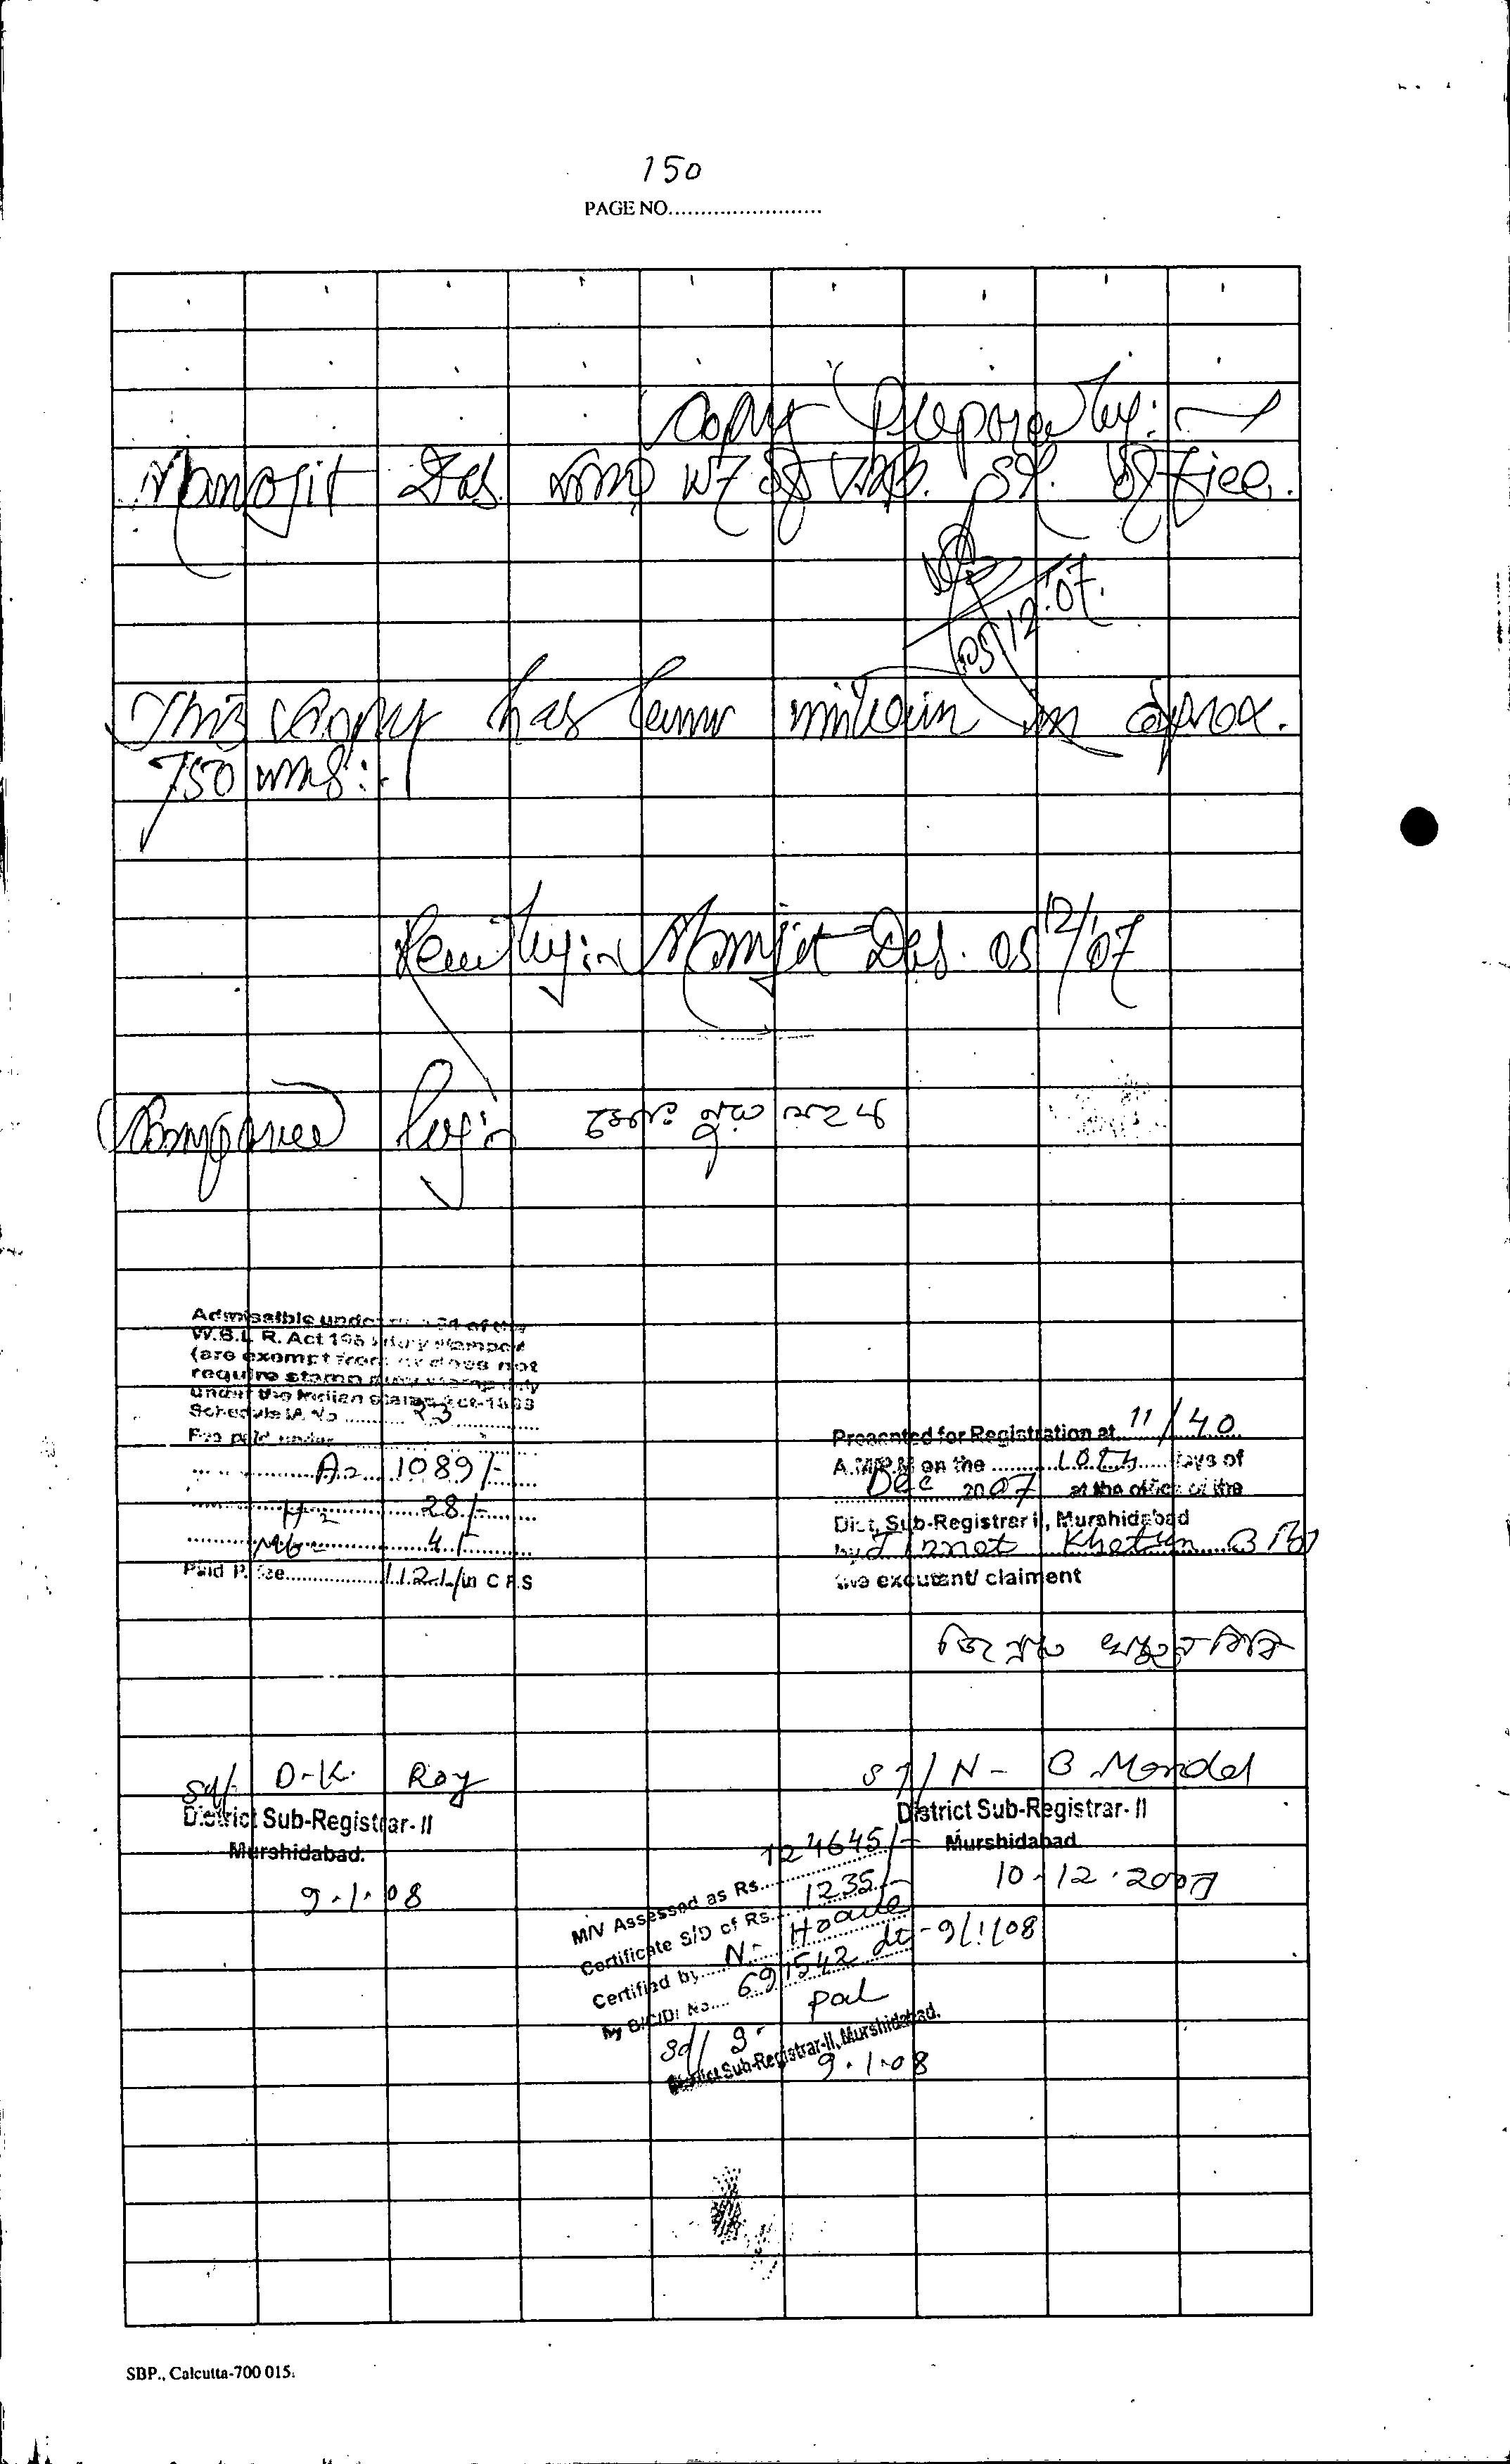 150
PAGE NO........................
Copy Prepared by:-
Manojit Das. Office.
05/12.07.
This Copy has written in aprox.
750 words:-
Read by:- Manojit Das. 05/12/07
Compared by:-
Admissible under of the
W.B.L.R. Act 195 duly stamped
(are exempt from or does not
require stamp duty
under the Indian Stamp Act-1899
Schedule IA No ......... 23
Fee paid under
A= 1089/-
H= 28/-
Mb= 4/-
Paid P. fee.................1121/in C F.S
Presented for Registration at 11/40
A.M/P.M on the 10th days of
Dec 2007 at the office of the
Dist, Sub-Registrar II, Murshidabad
by Jinnat Khatun Bibi
the excutant/ claiment
জিন্নাত খাতুন বিবি
Sd/- D-K. Roy
District Sub-Registrar-II
Murshidabad.
9.1.08
Sd/ N- B Mondal
District Sub-Registrar-II
Murshidabad
10-12.2007
M/V Assessed as Rs. 124645/-
Certificate S/D of Rs. 1235/-
Certified by N-
By B/C/D/ No.... 691542 dt-9/1/08
Sd/ S- Pal
District Sub-Registrar-II, Murshidabad.
9.1.08
SBP., Calcutta-700 015.